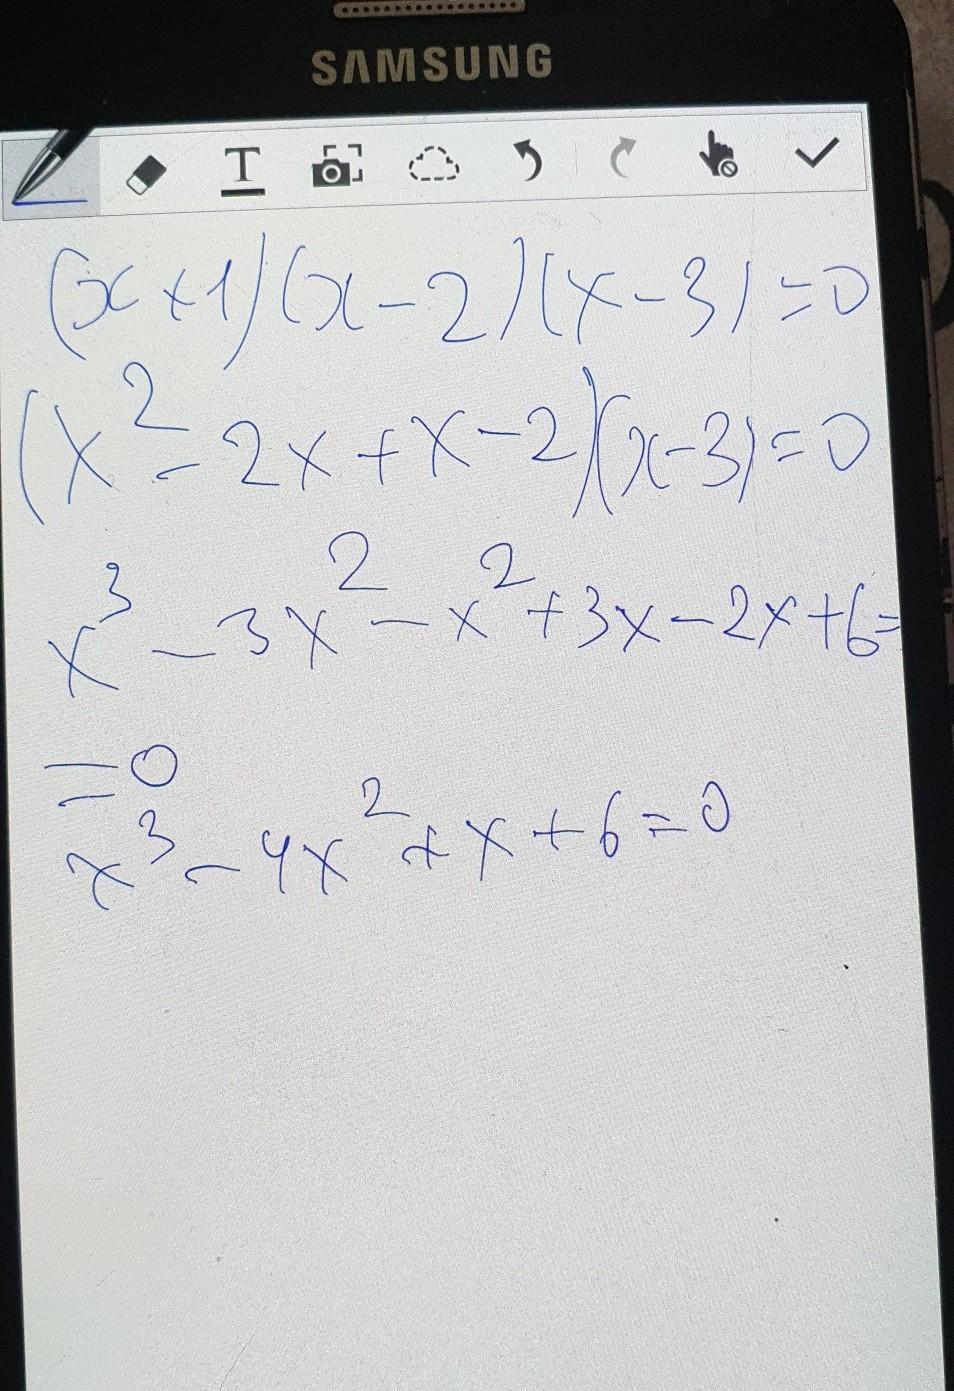 SAMSUNG
T
(x+1)(x-2)(x-3)=0
(x²-2x+x-2)(x-3)=0
x³-3x²-x²+3x-2x+6=
=0
x³-4x²+x+6=0